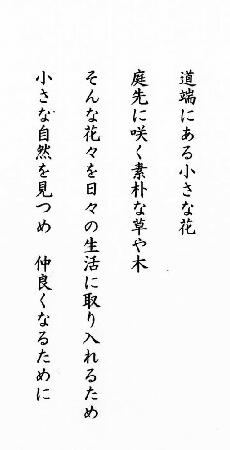 道端にある小さな花
庭先に咲く素朴な草や木
そんな花々を日々の生活に取り入れるため
小さな自然を見つめ　仲良くなるために